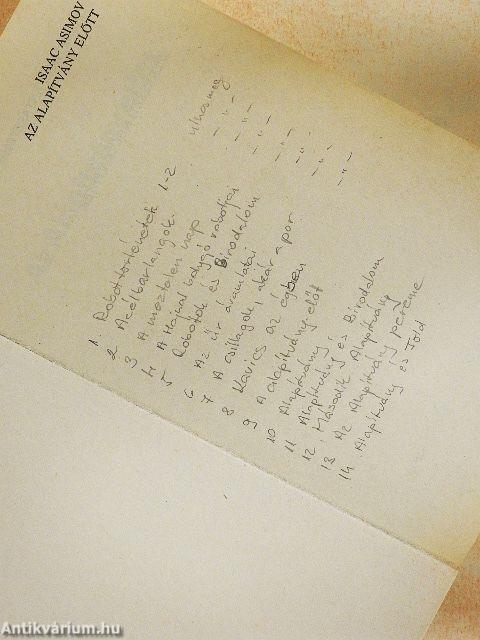 ISAAC ASIMOV
AZ ALAPÍTVÁNY ELŐTT
1. Robottörténetek 1-2
2 Acélbarlangok.
3 A meztelen nap
4 A Hajnal bolygó robotjai
5 Robotok és Birodalom
6 Az űr áramlatai
7 A csillagok, akár a por
8 Kavics az égben
9 A alapítvány előt
10 Alapítvány
11 Alapítvány és Birodalom
12. Második Alapítvány
13 Az Alapítvány pereme
14. Alapítvány és Föld
- " -
- " -
- " -
- " -
- " -
- " -
Antikvárium.hu